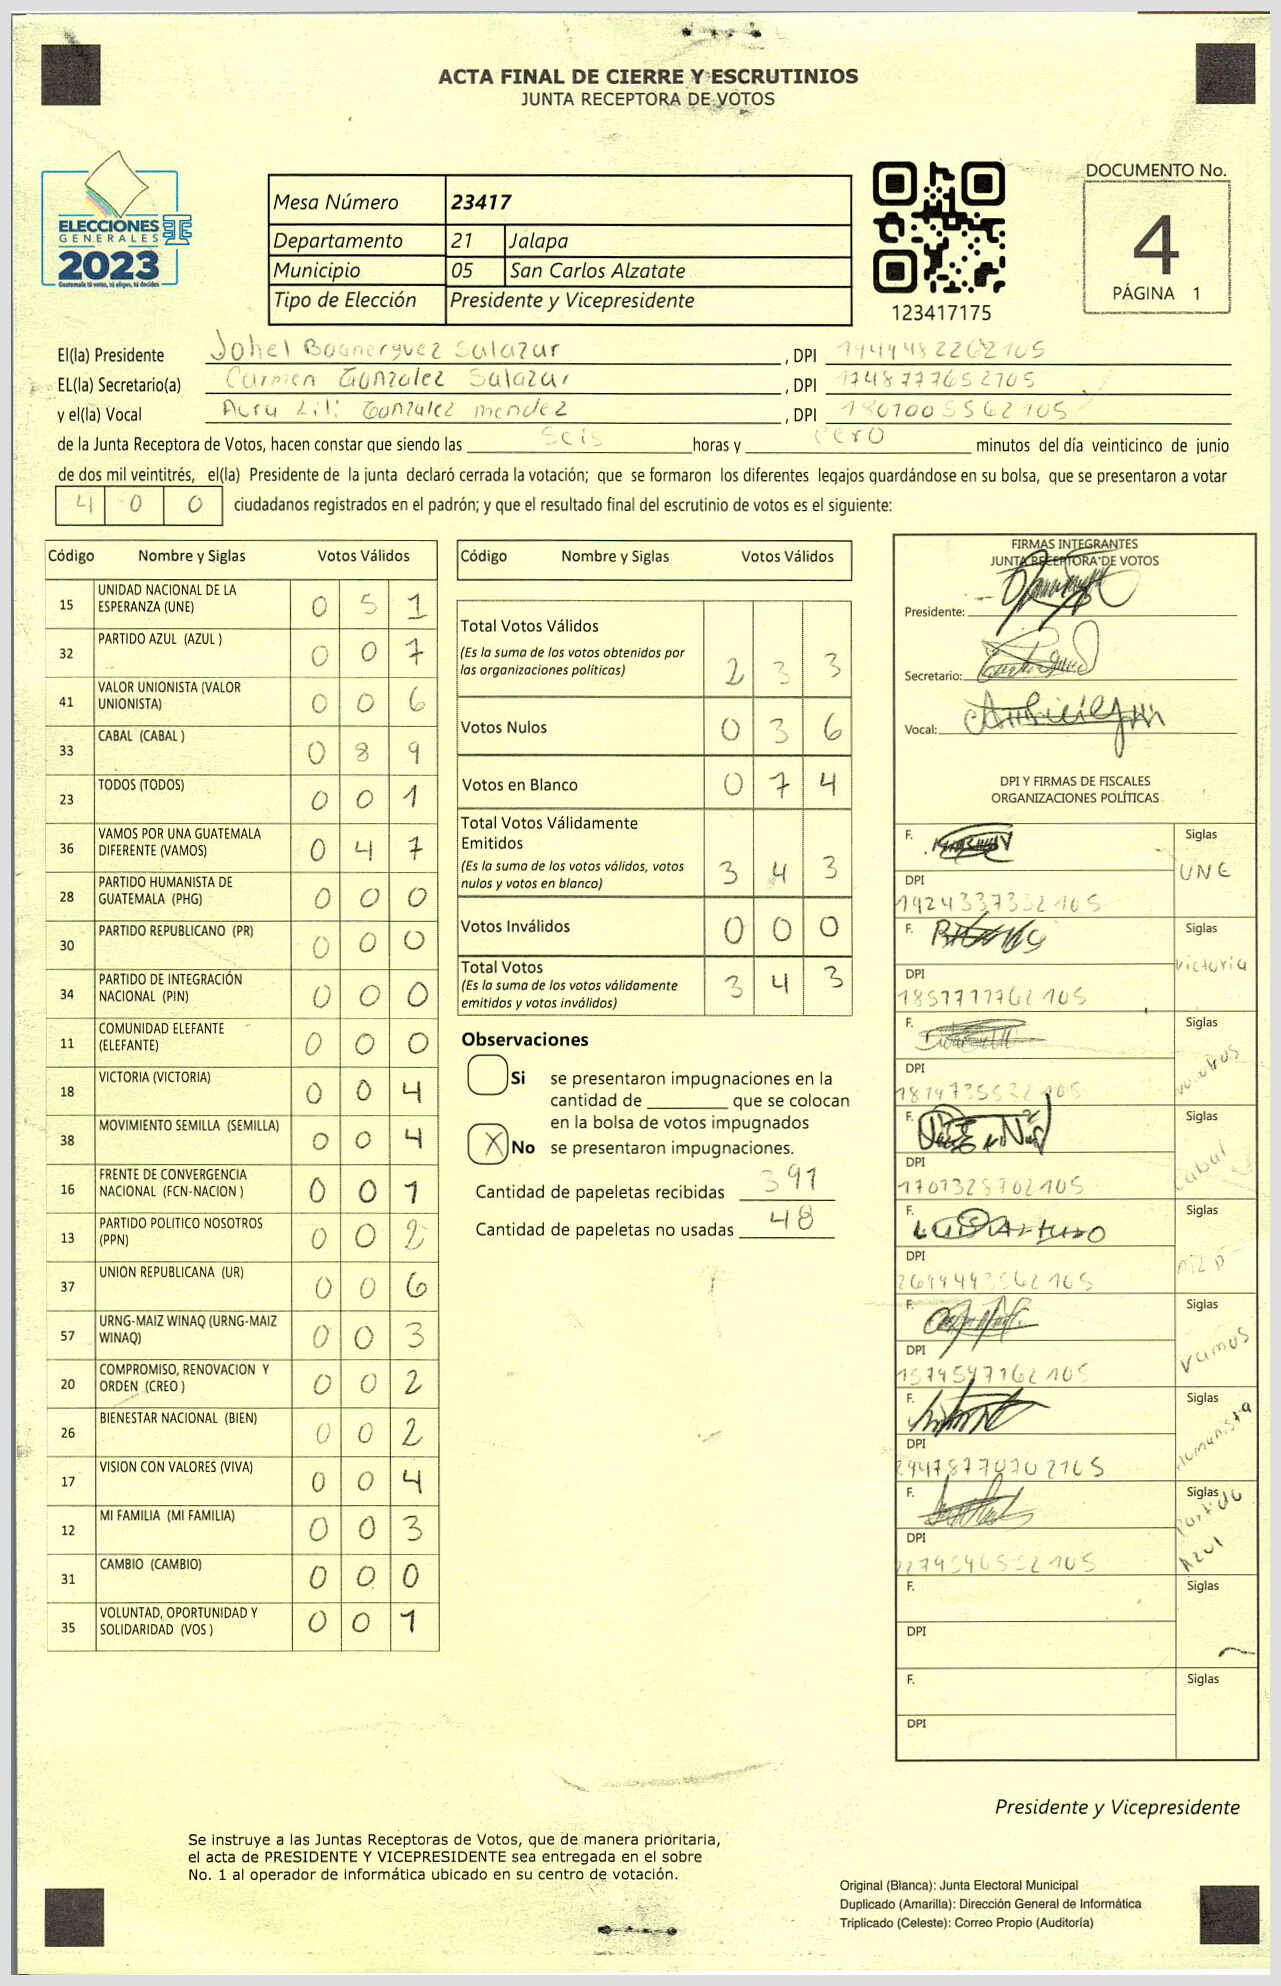 ACTA FINAL DE CIERRE Y ESCRUTINIOS
JUNTA RECEPTORA DE VOTOS
ELECCIONES
GENERALES
2023
Guatemala tú votas, tú eliges, tú decides
Mesa Número 23417
Departamento 21 Jalapa
Municipio 05 San Carlos Alzatate
Tipo de Elección Presidente y Vicepresidente
123417175
DOCUMENTO No.
4
PÁGINA 1
El(la) Presidente Johel Boanerguez Salazar, DPI 1949482262105
EL(la) Secretario(a) Carmen Gonzalez Salazar, DPI 1748777652105
y el(la) Vocal Aura Lili Gonzalez mendez, DPI 1801005562105
de la Junta Receptora de Votos, hacen constar que siendo las seis horas y cero minutos del día veinticinco de junio
de dos mil veintitrés, el(la) Presidente de la junta declaró cerrada la votación; que se formaron los diferentes legajos guardándose en su bolsa, que se presentaron a votar
400 ciudadanos registrados en el padrón; y que el resultado final del escrutinio de votos es el siguiente:
Código Nombre y Siglas Votos Válidos
15 UNIDAD NACIONAL DE LA ESPERANZA (UNE) 0 5 1
32 PARTIDO AZUL (AZUL ) 0 0 7
41 VALOR UNIONISTA (VALOR UNIONISTA) 0 0 6
33 CABAL (CABAL ) 0 8 9
23 TODOS (TODOS) 0 0 1
36 VAMOS POR UNA GUATEMALA DIFERENTE (VAMOS) 0 4 7
28 PARTIDO HUMANISTA DE GUATEMALA (PHG) 0 0 0
30 PARTIDO REPUBLICANO (PR) 0 0 0
34 PARTIDO DE INTEGRACIÓN NACIONAL (PIN) 0 0 0
11 COMUNIDAD ELEFANTE (ELEFANTE) 0 0 0
18 VICTORIA (VICTORIA) 0 0 4
38 MOVIMIENTO SEMILLA (SEMILLA) 0 0 4
16 FRENTE DE CONVERGENCIA NACIONAL (FCN-NACION ) 0 0 1
13 PARTIDO POLITICO NOSOTROS (PPN) 0 0 2
37 UNION REPUBLICANA (UR) 0 0 6
57 URNG-MAIZ WINAQ (URNG-MAIZ WINAQ) 0 0 3
20 COMPROMISO, RENOVACION Y ORDEN (CREO ) 0 0 2
26 BIENESTAR NACIONAL (BIEN) 0 0 2
17 VISION CON VALORES (VIVA) 0 0 4
12 MI FAMILIA (MI FAMILIA) 0 0 3
31 CAMBIO (CAMBIO) 0 0 0
35 VOLUNTAD, OPORTUNIDAD Y SOLIDARIDAD (VOS ) 0 0 1
Código Nombre y Siglas Votos Válidos
Total Votos Válidos
(Es la suma de los votos obtenidos por
las organizaciones políticas) 2 3 3
Votos Nulos 0 3 6
Votos en Blanco 0 7 4
Total Votos Válidamente
Emitidos
(Es la suma de los votos válidos, votos
nulos y votos en blanco) 3 4 3
Votos Inválidos 0 0 0
Total Votos
(Es la suma de los votos válidamente
emitidos y votos inválidos) 3 4 3
Observaciones
Si se presentaron impugnaciones en la
cantidad de ________ que se colocan
en la bolsa de votos impugnados
X No se presentaron impugnaciones.
Cantidad de papeletas recibidas 391
Cantidad de papeletas no usadas 48
FIRMAS INTEGRANTES
JUNTA RECEPTORA DE VOTOS
Presidente:
Secretario:
Vocal:
DPI Y FIRMAS DE FISCALES
ORGANIZACIONES POLÍTICAS
F. Siglas
UNE
DPI
1924337332105
F. Siglas
victoria
DPI
1857777762105
F. Siglas
nosotros
DPI
1819735532105
F. Siglas
Cabal
DPI
1701328702105
F. Luis Arturo Siglas
DPI
2699493562105
F. Siglas
Vamos
DPI
1574597162105
F. Siglas
Humanista
DPI
29478770702105
F. Siglas
Partido
Azul
DPI
2279546552105
F. Siglas
DPI
F. Siglas
DPI
Presidente y Vicepresidente
Se instruye a las Juntas Receptoras de Votos, que de manera prioritaria,
el acta de PRESIDENTE Y VICEPRESIDENTE sea entregada en el sobre
No. 1 al operador de informática ubicado en su centro de votación.
Original (Blanca): Junta Electoral Municipal
Duplicado (Amarilla): Dirección General de Informática
Triplicado (Celeste): Correo Propio (Auditoría)